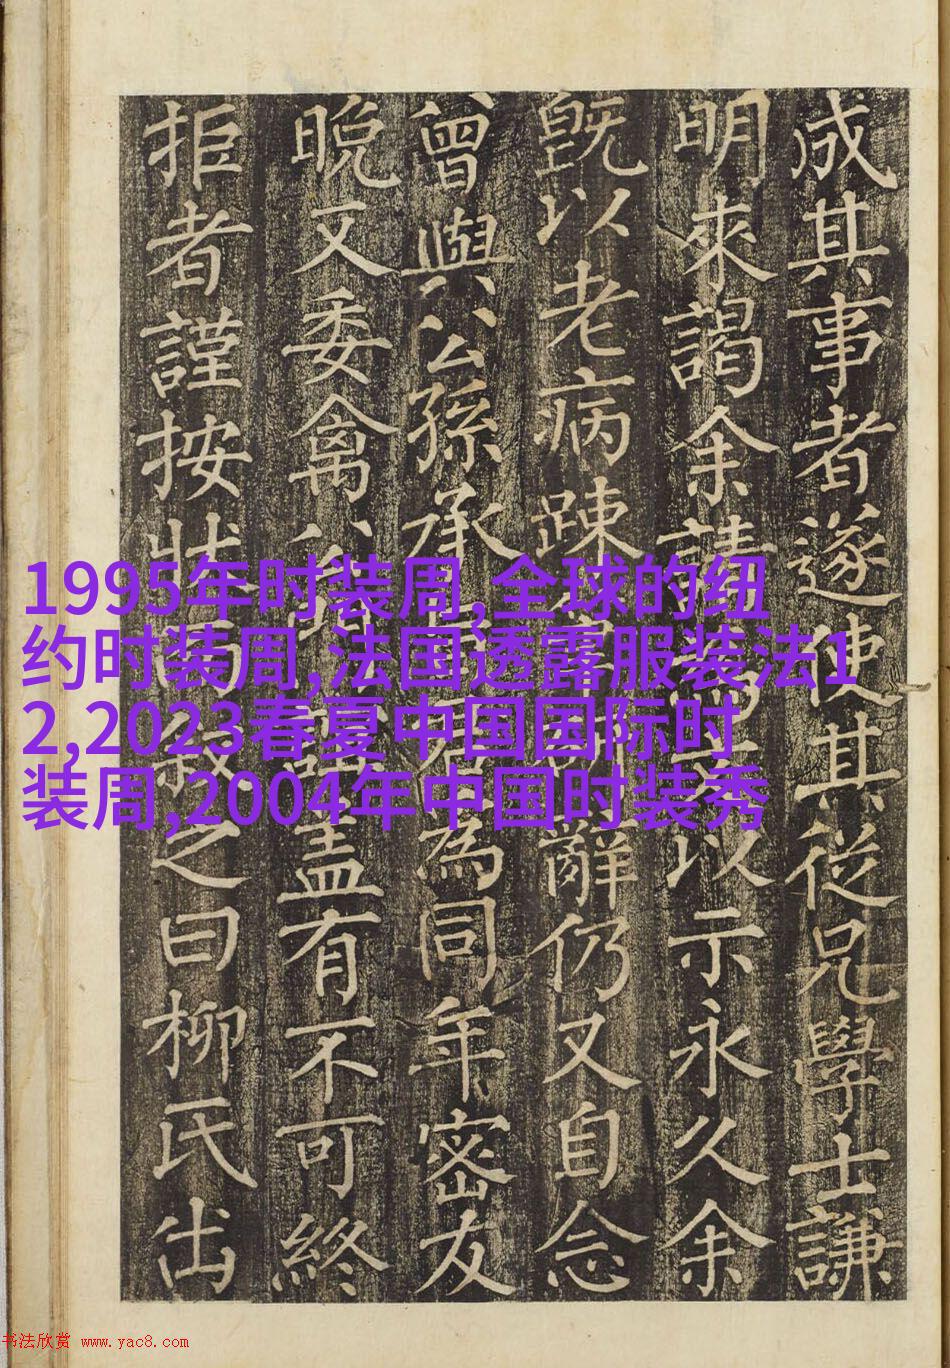 成其事者遂使其從兄學士謙
明來謁余請以示永久余
既以老病踈辭仍又自念
曾與公孫承為同年密友
晚又委禽盖有不可終
拒者謹按狀之曰柳氏出
1995年时装周,全球的纽
约时装周,法国透露服装法1
2,2023春夏中国国际时
装周,2004年中国时装秀
书法欣赏 www.yac8.com